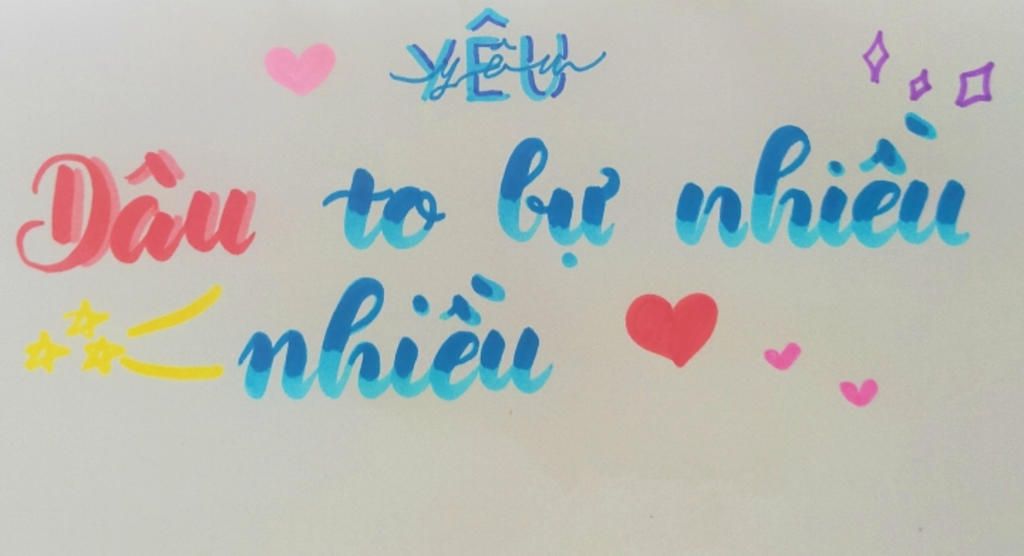 YÊU
yêu
Dâu to bự nhiều
nhiều